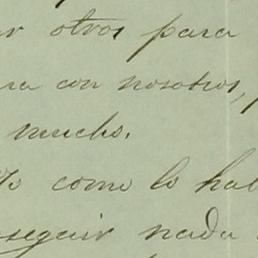 otros para
con nosotros,
mucho.
como lo hab
seguir nada